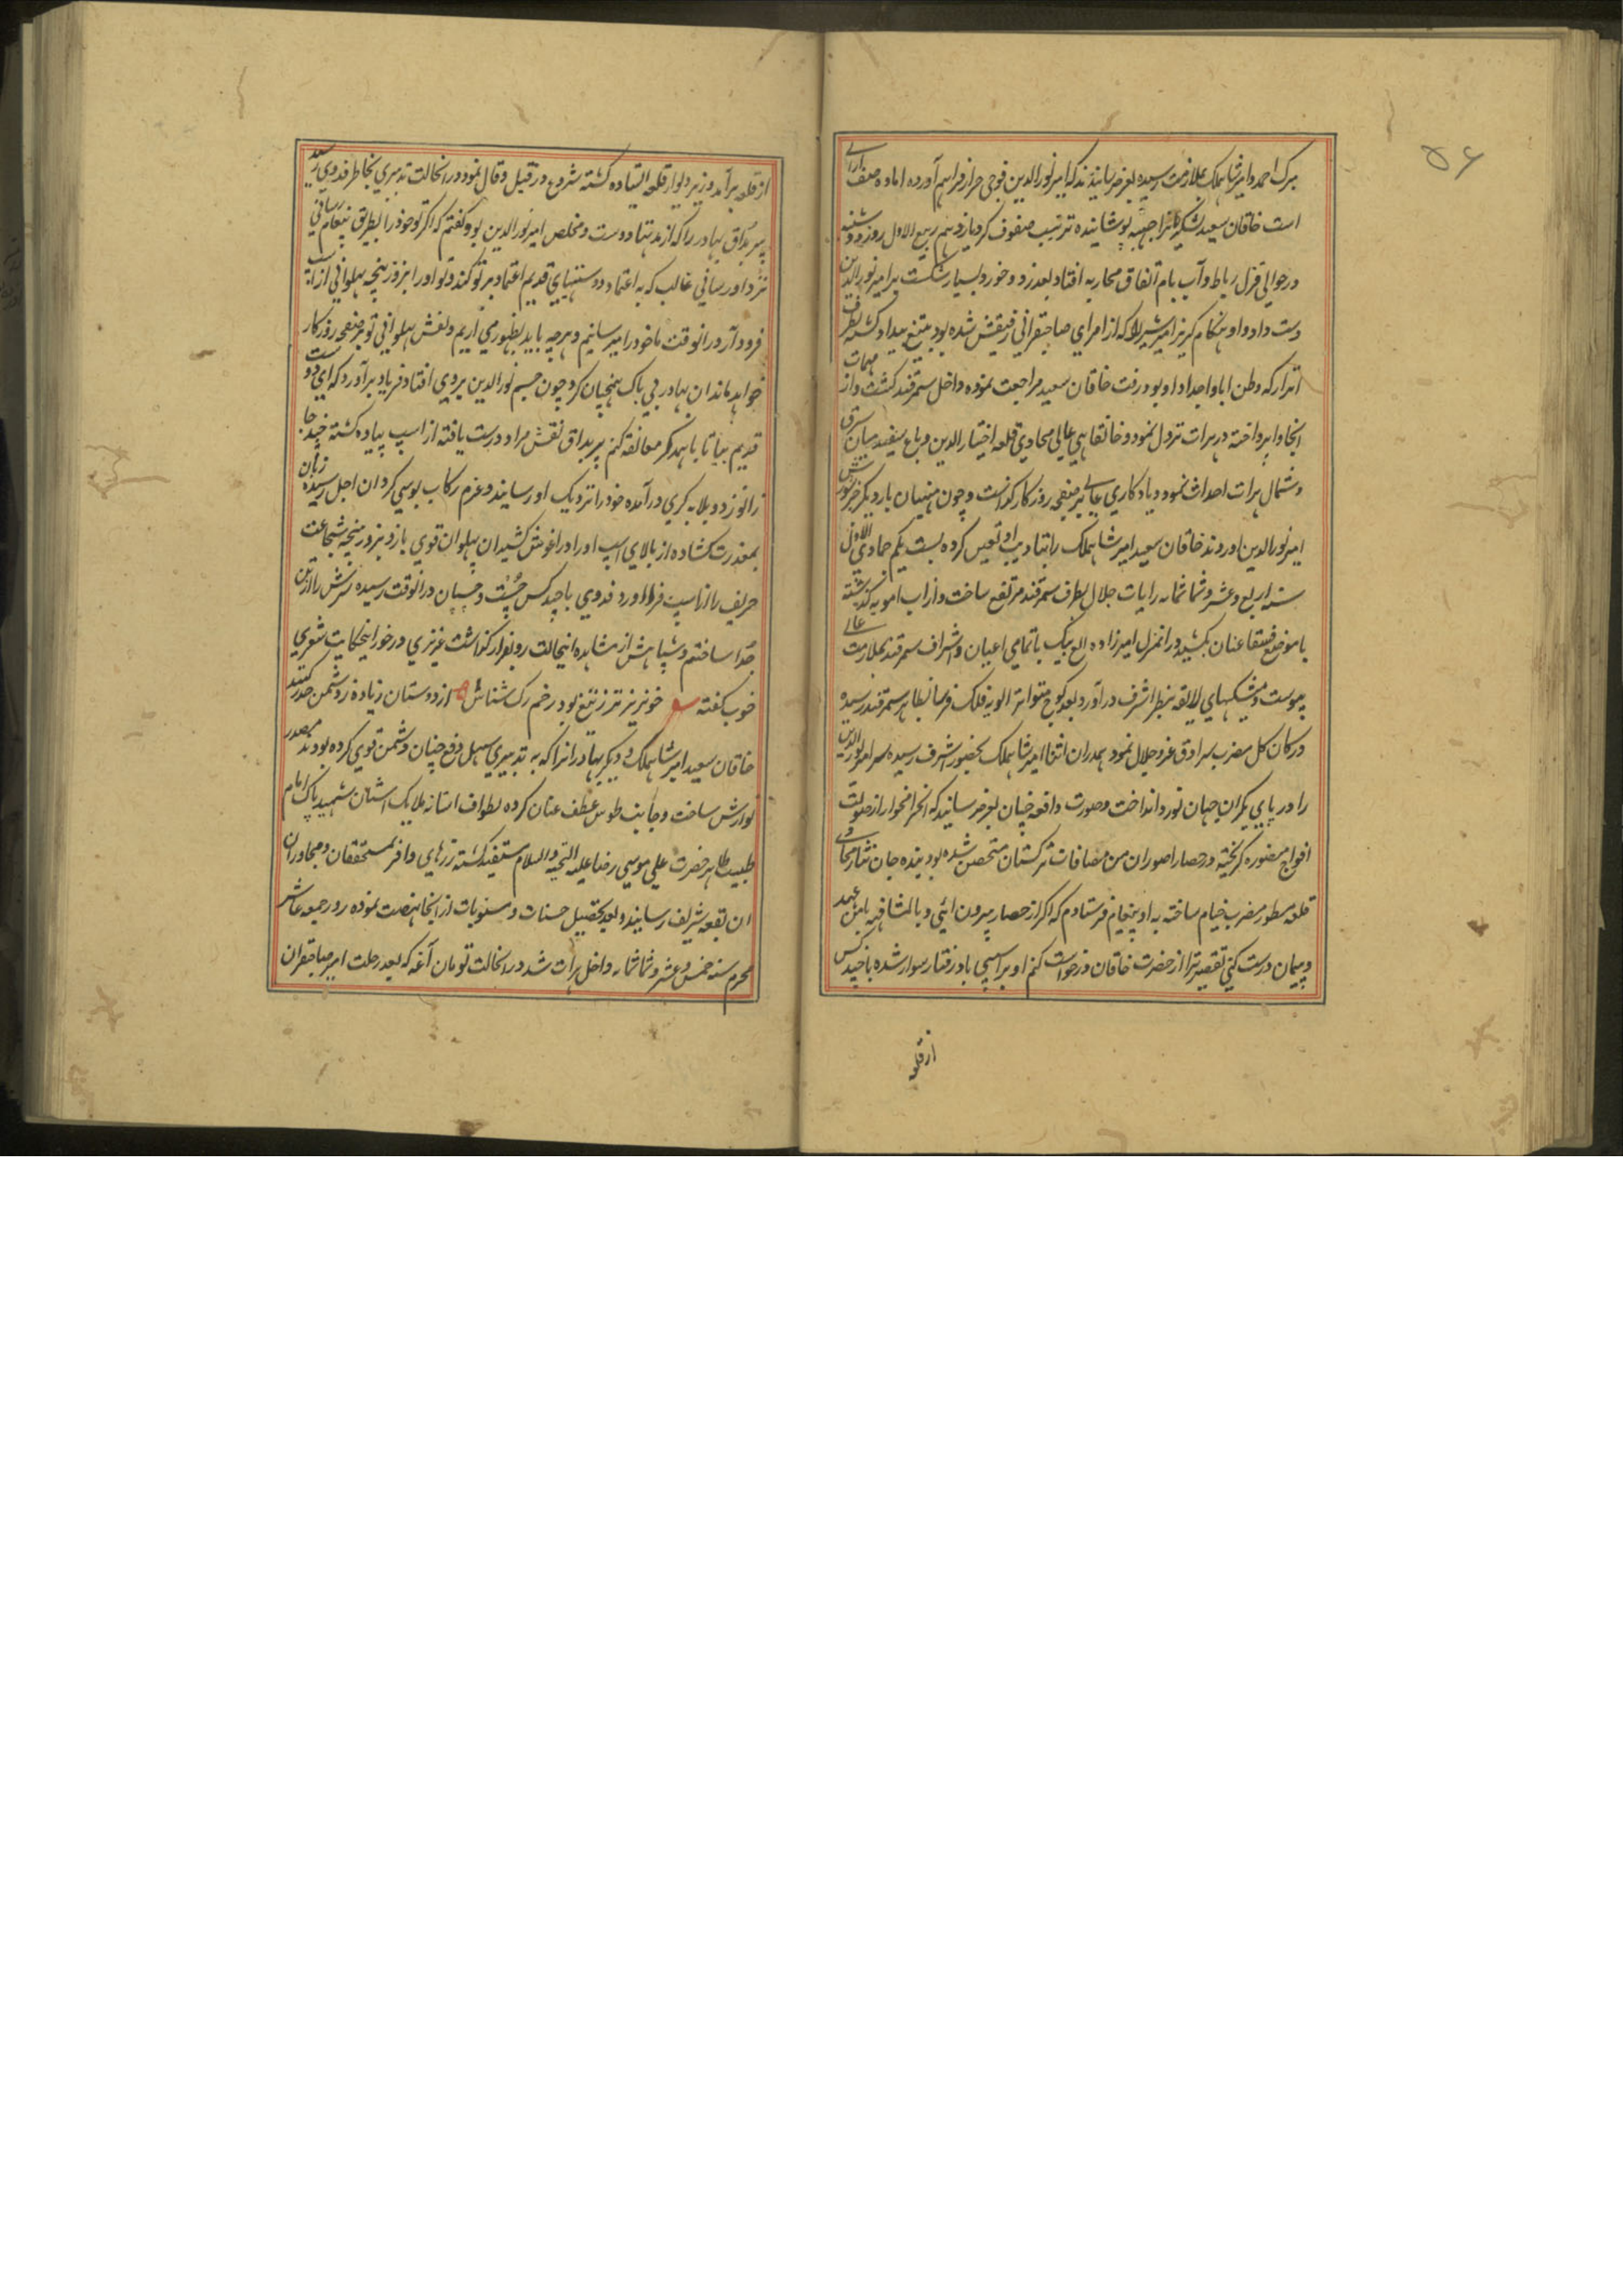 ۵۶
میرک احمد و امیر شاهملک بملازمت رسیده بعرض رسانیدند که امیر نورالدین فوجی جرار فراهم آورده اماده صف آرائی
است خاقان سعید لشکریانرا جبه پوشانیده ترتیب صفوف کرد یازدهم ربیع الاول روز دوشنبه
در حوالی قزل رباط و آب بام اتفاق محاربه افتاد بعد زد و خورد بسیار شکست بر امیر نورالدین
دست داد و او بهنگام گریز امیر را که از امرای صاحبقرانی رفیقش شده بود بتیغ بیداد کشته بطرف
اترار که وطن ابا و اجداد او بود رفت خاقان سعید مراجعت نموده داخل سمرقند گشت و از مهمات
انجا وا پرداخته در هرات نزول نمود و خانقاهی عالی محاذی قلعه اختیار الدین و باغ سفید میان شرق
و شمال هرات احداث نمود و یادکاری عالی بر صفحه روزکار گذاشت و چون منهیان بار دیگر خبر شورش
امیر نورالدین اوردند خاقان سعید امیر شاهملک را بتادیب او تعین کرده بست یکم جمادی الاول
سنه اربع و عشر و ثمانمائه رایات جلال بطرف سمرقند مرتفع ساخت و از اب امویه گذشته
با موضع عنان بکشید و در انمنزل امیرزاده الغ بیگ با تمامی اعیان و اشراف سمرقند بملازمت عالی
پیوست و پیشکیهای لایقه بنظر اشرف در آورد بعد کوچ متواتر الویه فلک فرسا بظاهر سمرقند رسیده
در کان کل مضرب سرادق عز و جلال نمود همدران اثنا امیر شاهملک بحضور اشرف رسیده سر امیر نورالدین
را در پای یکران جهان نورد انداخت و صورت واقعه چنان بعرض رسانید که از صولت
افواج منصوره گریخته در حصار اصوران من مضافات ترکستان متحصن شده بود بنده جان نثار محاذی
قلعه مسطور مضرب خیام ساخته به او پیغام فرستادم که اگر از حصار بیرون ائی و بالمشافهه بامن عهد
و پیمان درست کنی تقصیر ترا از حضرت خاقان درخواست کنم او بر اسپی باد رفتار سوار شده با چند کس
از قلعه
از قلعه برآمد و زیر دیوار قلعه ایستاده گشته شروع در قیل و قال نمود در انحالت تدبیری بخاطر فدوی رسید
پیر بداق بهادر را که از مدتها دوست و مخلص امیر نورالدین بود گفتم که اگر تو خود را بطریق پیغام رسانی
نزد او رسانی غالب که به اعتماد دوستیهای قدیم اعتماد بر تو کند و تو او را بزور پنجه پهلوانی از اسپ
فرود آر در انوقت ما خود را میرسانیم و هرچه باید بظهور می اریم و نقش پهلوانی تو بر صفحه روزکار
خواهد ماند ان بهادر بی باک همچنان کرد چون چشم نورالدین بر وی افتاد فریاد برآورد که ای دوست
قدیم بیا تا با همدگر معانقه کنم پیر بداق نقش مراد درست یافته از اسپ پیاده گشته چند جا
زانو زد و بلابه گری در آمده خود را نزدیک او رسانید و عزم رکاب بوسی کرد ان اجل رسیده زبان
بمعذرت گشاده از بالای اسپ او را در اغوش کشید ان پهلوان قوی بازو بزور پنجه شجاعت
حریف را از اسپ فرود اورد فدوی با چند کس چست و چسپان در انوقت رسیده سرش را از تن
جدا ساختم و سپاهش از مشاهده اینحالت رو بفرار گذاشت عزیزی در خور اینحکایت شعری
خوب گفته خونریز تر ز تیغ بود زخم رگ شناس از دوستان زیاده ز دشمن حذر کنید
خاقان سعید امیر شاهملک و دیگر بهادرانرا که به تدبیری سهل دفع چنان دشمن قوی کرده بودند مصدر
نوازش ساخت و جانب طوس عطف عنان کرده بطواف استانه ملایک اشیان شهید پاک امام
طیب طاهر حضرت علی موسی رضا علیه التحیه و السلام مستفید گشته زرهای وافر بمستحقان و مجاوران
ان بقعه شریف رسانید و بعد تحصیل حسنات و مثوبات از انجا نهضت نموده روز جمعه عاشر
محرم سنه خمس و عشر و ثمانمائه داخل هرات شد در انحالت تومان آغه که بعد رحلت امیر صاحبقران